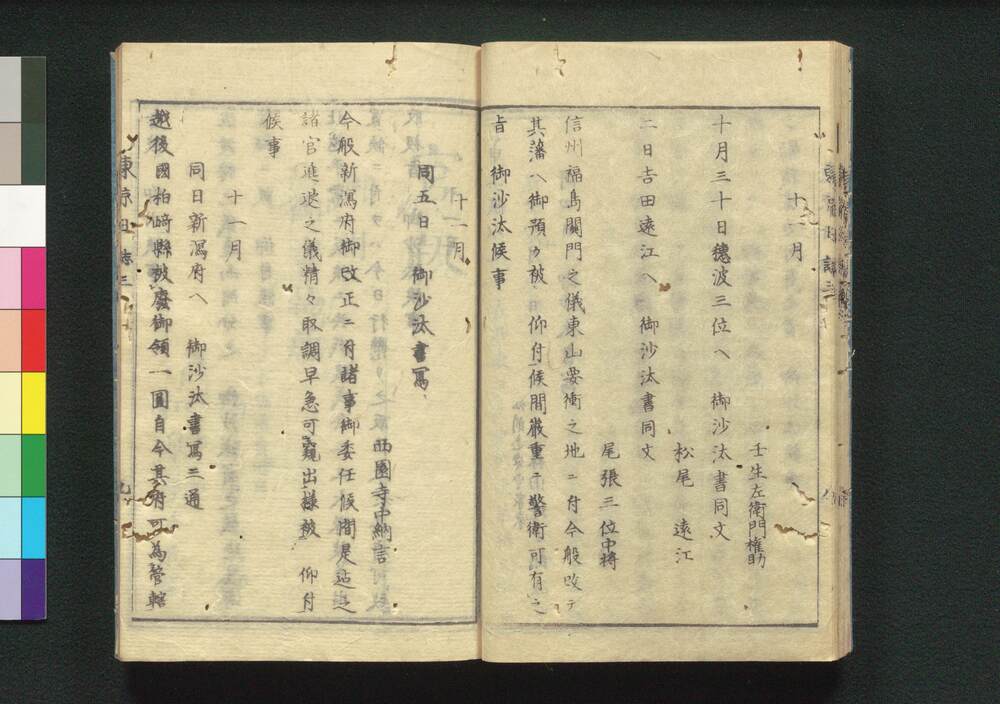 十一月
壬生左衛門権助
十月三十日穂波三位ヘ　御沙汰書同文
松尾　遠江
二日吉田遠江ヘ　御沙汰書同文
尾張三位中将
信州福島關門之儀東山要衝之地ニ付今般改テ
其藩ヘ御預ケ被　仰付候間嚴重ニ警衛可有之
旨　御沙汰候事
十一月
同五日　御沙汰書寫
西園寺中納言
今般新潟府御改正ニ付諸事御委任候間是迄之
諸官進退之儀精々取調早急可窺出様被　仰付
候事
十一月
同日新潟府ヘ　御沙汰書寫三通
越後國柏崎縣被廢御領一圓自今其府可為管轄
東京日誌三